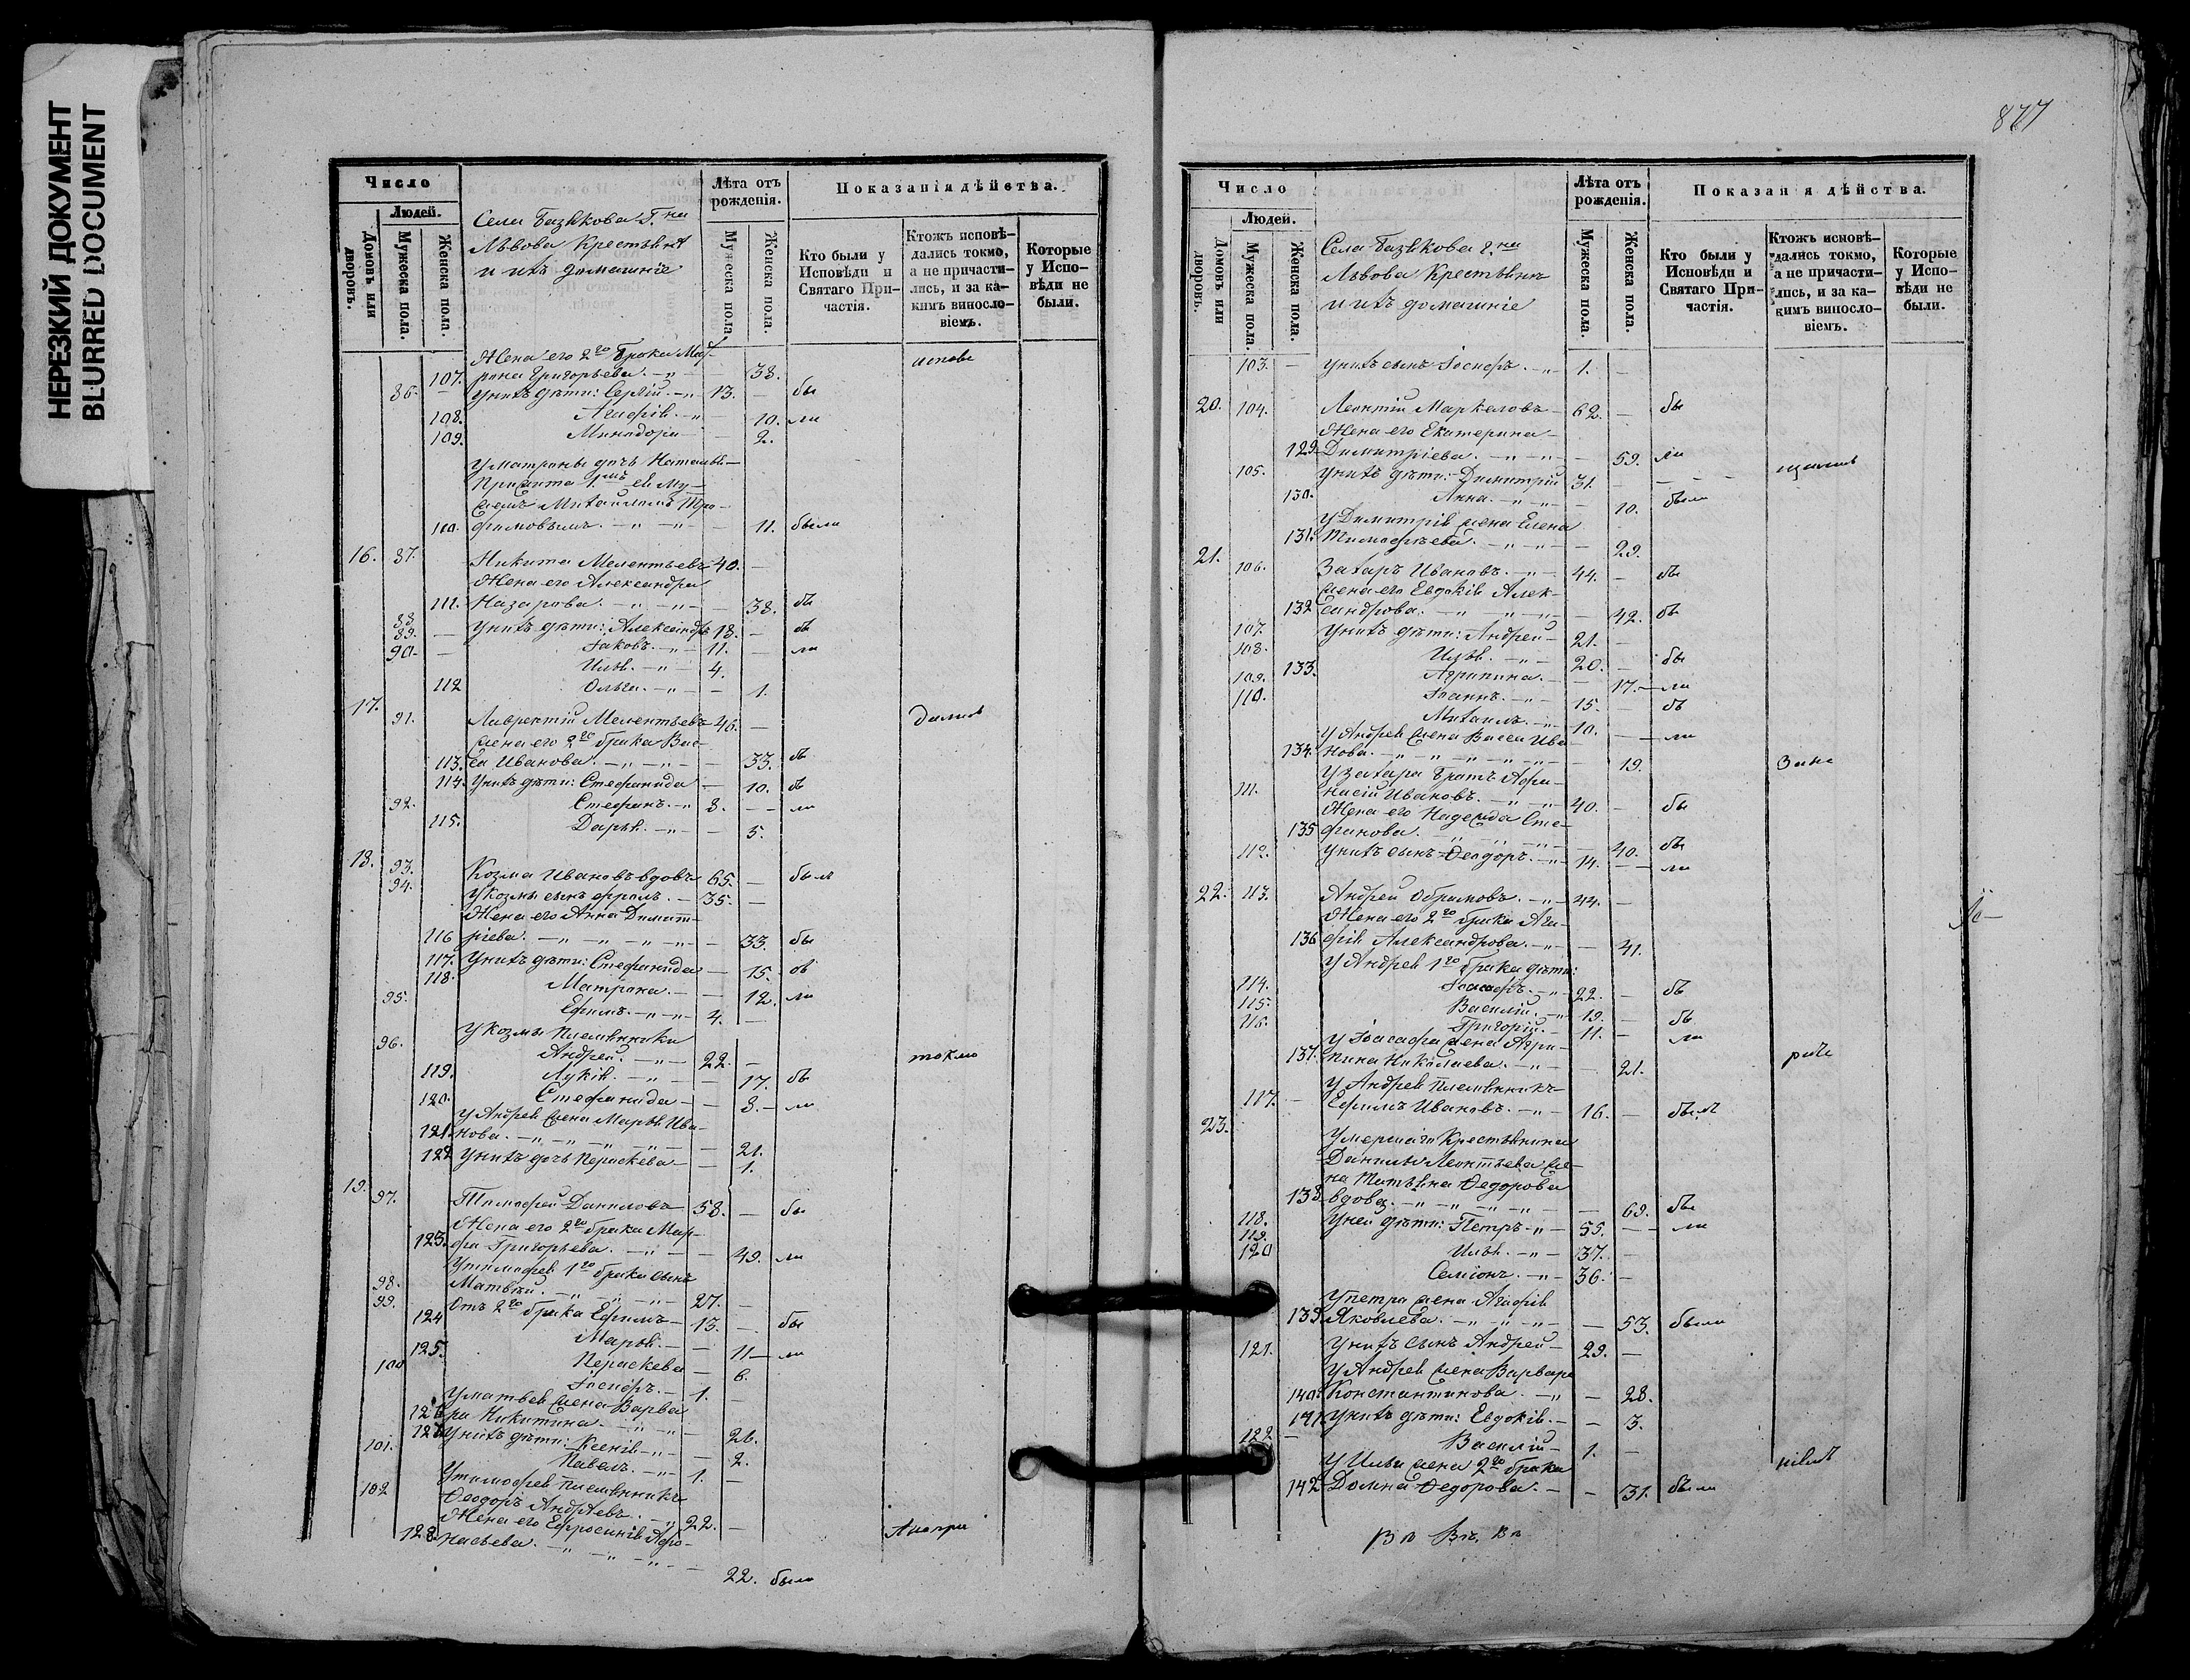 НЕРЕЗКИЙ ДОКУМЕНТ
BLURRED DOCUMENT
Число
Людей.
Домовъ или дворовъ.
Мужеска пола.
Женска пола.
Села Базѣкова Г.на
Львова Крестьяне
и ихъ домашніе
Лѣта отъ рожденія.
Мужеска пола.
Женска пола.
Показанія дѣйства.
Кто были у Исповѣди и Святаго Причастія.
Ктожъ исповѣдались токмо, а не причастились, и за какимъ винословіемъ.
Которые у Исповѣди не были.
Жена его 2го брака Мат-
107. рона Григорьева. 38. испове
86. У нихъ дѣти: Сергій. 13. бы
108. Агафія. 10. ли
109. Минодора 2.
У Матроны дочь Наталья
прижита 1мъ ея му-
жемъ Михаиломъ Тро-
110. фимовымъ. 11. была
16. 87. Никита Мелентьевъ 40.
Жена его Александра
111. Назарова. 38. бы
88. У нихъ дѣти: Александръ 18. бы
89. Іаковъ. 11. ли
90. Илья. 4.
112 Ольга. 1.
17. 91. Лаврентій Мелентьевъ 46. дались
Жена его 2го брака Вас-
113. са Иванова. 33. бы
114. У нихъ дѣти: Стефанида 10. бы
92. Стефанъ. 8. ли
115. Дарья. 5.
18. 93. Козма Ивановъ вдовъ 65. былъ
94. У Козмы сынъ Фролъ. 35.
Жена его Анна Димит-
116 ріева. 33. бы
117. У нихъ дѣти: Стефанида 15. бы
118. Матрона. 12. ли
95. Ефимъ. 4.
У Козмы племянники
96. Андрей. 22. токмо
119. Лукія. 17. бы
120. Стефанида 8. ли
У Андрея жена Марья Ива-
121. нова. 21.
122 У нихъ дочь Параскева 1.
19. 97. Тимофей Даниловъ 58. бы
Жена его 2го брака Мар-
123. фа Григорьева. 49. ли
У Тимофея 1го брака сынъ
98. Матвѣй. 27.
99. Отъ 2го брака Ефимъ 13. бы
124 Марья. 11 ли
125. Параскева 6.
100 Іосифъ. 1.
У Матвея жена Варва-
126 ра Никитина. 26.
127 У нихъ дѣти: Ксенія 2.
101. Павелъ. 1.
У Тимофея племянникъ
102 Феодоръ Андреевъ. 22.
Жена его Ефросинія Афо-
128. насьева. 22. была Анепри
877
Число
Людей.
Домовъ или дворовъ.
Мужеска пола.
Женска пола.
Села Базѣкова г.на
Львова Крестьяне
и ихъ домашніе
Лѣта отъ рожденія.
Мужеска пола.
Женска пола.
Показанія дѣйства.
Кто были у Исповѣди и Святаго Причастія.
Ктожъ исповѣдались токмо, а не причастились, и за какимъ винословіемъ.
Которые у Исповѣди не были.
103. У нихъ сынъ Іосифъ. 1.
20. 104. Леонтій Маркеловъ 62. бы
Жена его Екатерина
129. Димитріева. 59. ли
105. У нихъ дѣти: Димитрій 31.
130. Анна. 10. была
У Димитрія жена Елена
131. Тимофѣева. 29.
21. 106. Захаръ Ивановъ. 44. бы
Жена его Евдокія Алек-
132 сандрова. 42. бы
107. У нихъ дѣти: Андрей 21.
108. Илья. 20. бы
133. Агрипина. 17. ли
109. Іоаннъ. 15. бы
110. Михаилъ. 10. ли
У Андрея жена Васса Ива-
134. нова. 19. Зане
У Захара братъ Афа-
111. насій Ивановъ. 40. бы
Жена его Надежда Сте-
135 фанова. 40. бы
112. У нихъ сынъ Феодоръ. 14. ли
22. 113. Андрей Обрамовъ. 44.
Жена его 2го брака Ага-
136 фія Александрова. 41.
У Андрея 1го брака дѣти:
114. Іоасафъ. 22. бы
115. Василій. 19. бы
116. Григорій. 11. ли
У Іоасафа жена Агри-
137. пина Николаева. 21.
У Андрея племянникъ
117. Ефимъ Ивановъ. 16. былъ
23. Умершаго Крестьянина
Данилы Леонтьева же-
на Татьяна Федорова
138. вдова. 69. бы
118. У ней дѣти: Петръ 55. ли
119. Илья. 37.
120 Семіонъ. 36.
У Петра жена Агафія
139. Яковлева. 53. была
121. У нихъ сынъ Андрей 29.
У Андрея жена Варвара
140. Константинова. 28.
141. У нихъ дѣти: Евдокія. 3.
122 Василій 1.
У Ильи жена 2го брака
142 Домна Федорова. 31. была